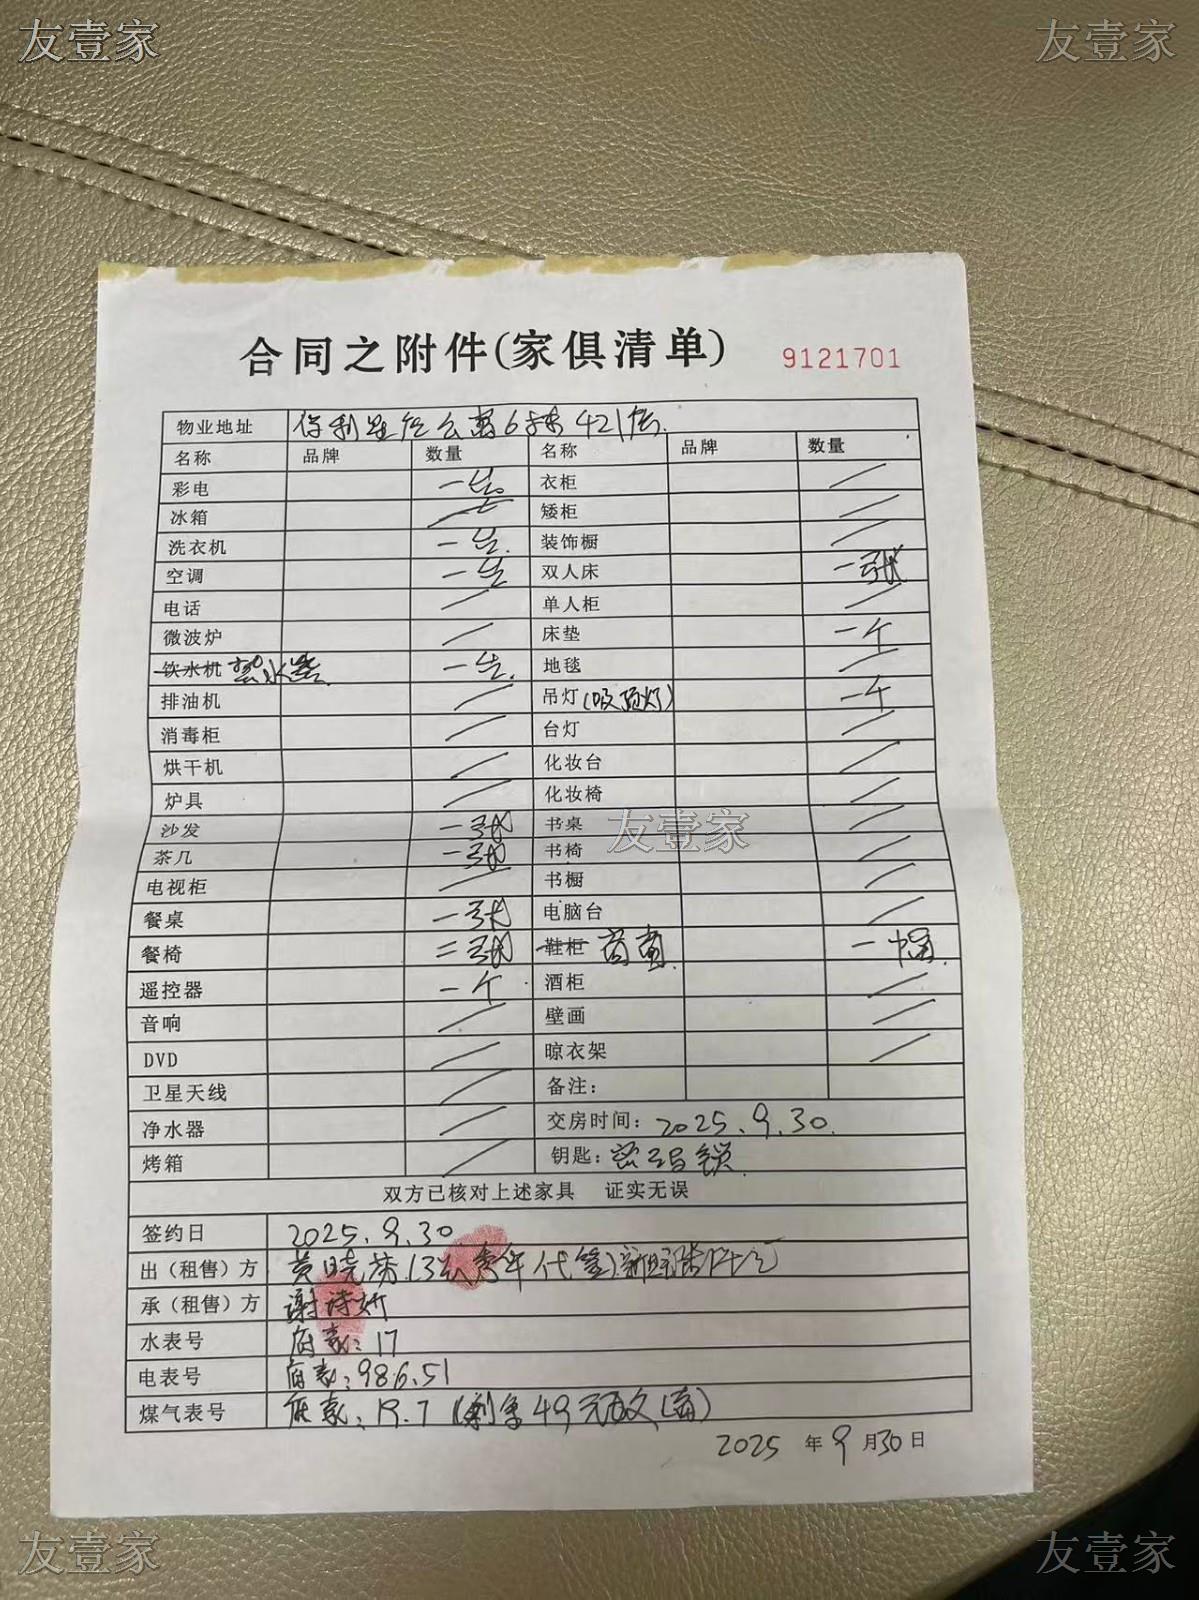 友壹家 友壹家
合同之附件(家俱清单) 9121701
物业地址 保利星座公寓6栋421房.
名称 品牌 数量 名称 品牌 数量
彩电 一台 衣柜
冰箱 矮柜
洗衣机 一台. 装饰橱
空调 一台 双人床 一张
电话 单人柜
微波炉 床垫 一个
饮水机 热水器 一台. 地毯
排油机 吊灯(吸顶灯) 一个
消毒柜 台灯
烘干机 化妆台
炉具 化妆椅
沙发 一张 书桌 友壹家
茶几 一张 书椅
电视柜 书橱
餐桌 一张 电脑台
餐椅 二张 鞋柜 窗帘 一幅.
遥控器 一个 酒柜
音响 壁画
DVD 晾衣架
卫星天线 备注:
净水器 交房时间: 2025.9.30.
烤箱 钥匙: 密码锁.
双方已核对上述家具 证实无误
签约日 2025.9.30
出（租售）方 青年代签)
承（租售）方 谢诗妍
水表号 底表: 17
电表号 底表: 986.51
煤气表号 底表: 19.7 (剩余49元
2025 年 9 月30日
友壹家 友壹家